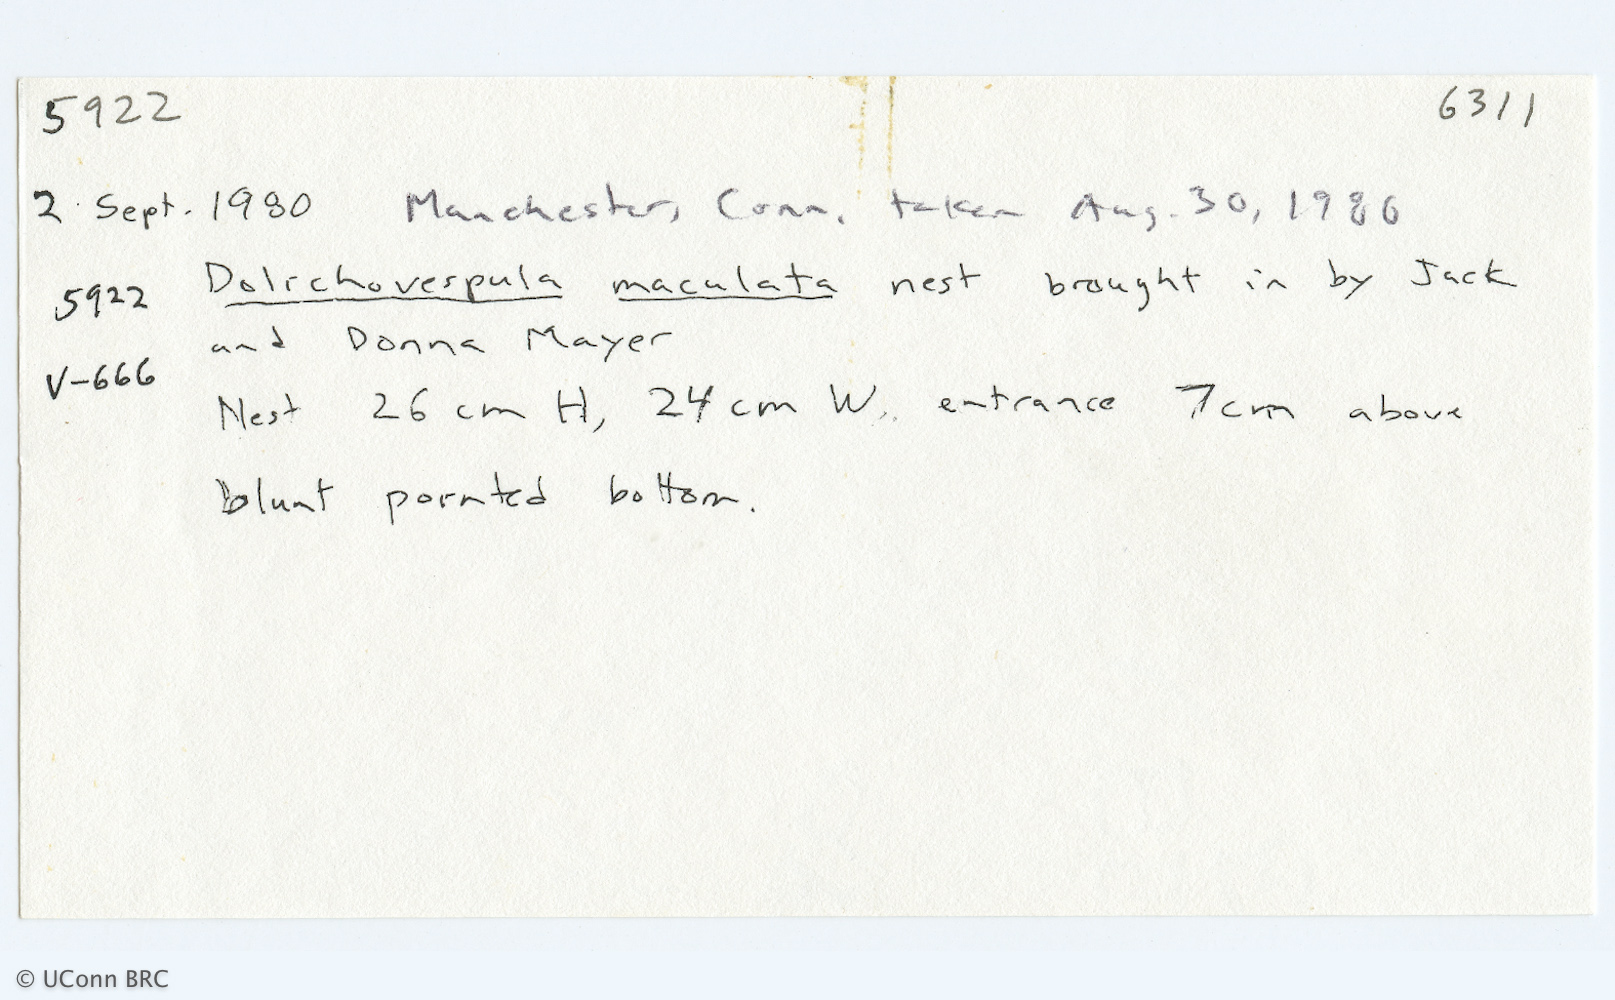 5922 6311
2 Sept. 1980 Manchester, Conn. taken Aug. 30, 1986
5922 Dolichovespula maculata nest brought in by Jack
and Donna Mayer
V-666
Nest 26 cm H, 24 cm W, entrance 7cm above
blunt pointed bottom.
© UConn BRC